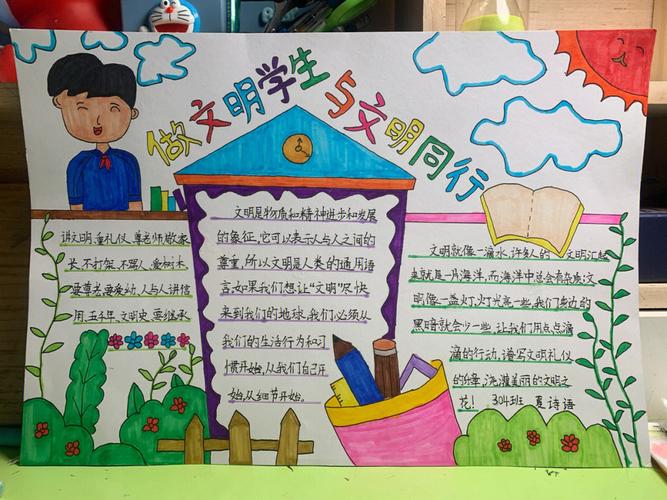 做文明学生与文明同行
讲文明,重礼仪,尊老师敬家
长,不打架,不骂人,爱树木
要尊老,要爱幼,人与人讲信
用,五千年文明史,要继承
文明是物质和精神进步和发展
的象征,它可以表示人与人之间的
尊重,所以文明是人类的通用语
言,如果我们想让“文明”尽快
来到我们的地球,我们必须从
我们的生活行为和习
惯开始,从我们自己开
始,从细节开始。
文明就像一滴水,许多人的 文明汇起
来就是一片海洋,而海洋中总会有杂质;文
明像一盏灯,灯光亮一些,我们身边的
黑暗就会少一些,让我们用点点滴
滴的行动,谱写文明礼仪
的华章,浇灌美丽的文明之
花! 304班 夏诗语